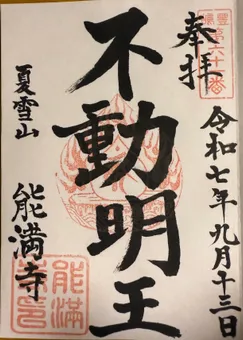 奉拝
第六十番
令和七年九月十三日
不動明王
夏雪山
能満寺
能満
寺印